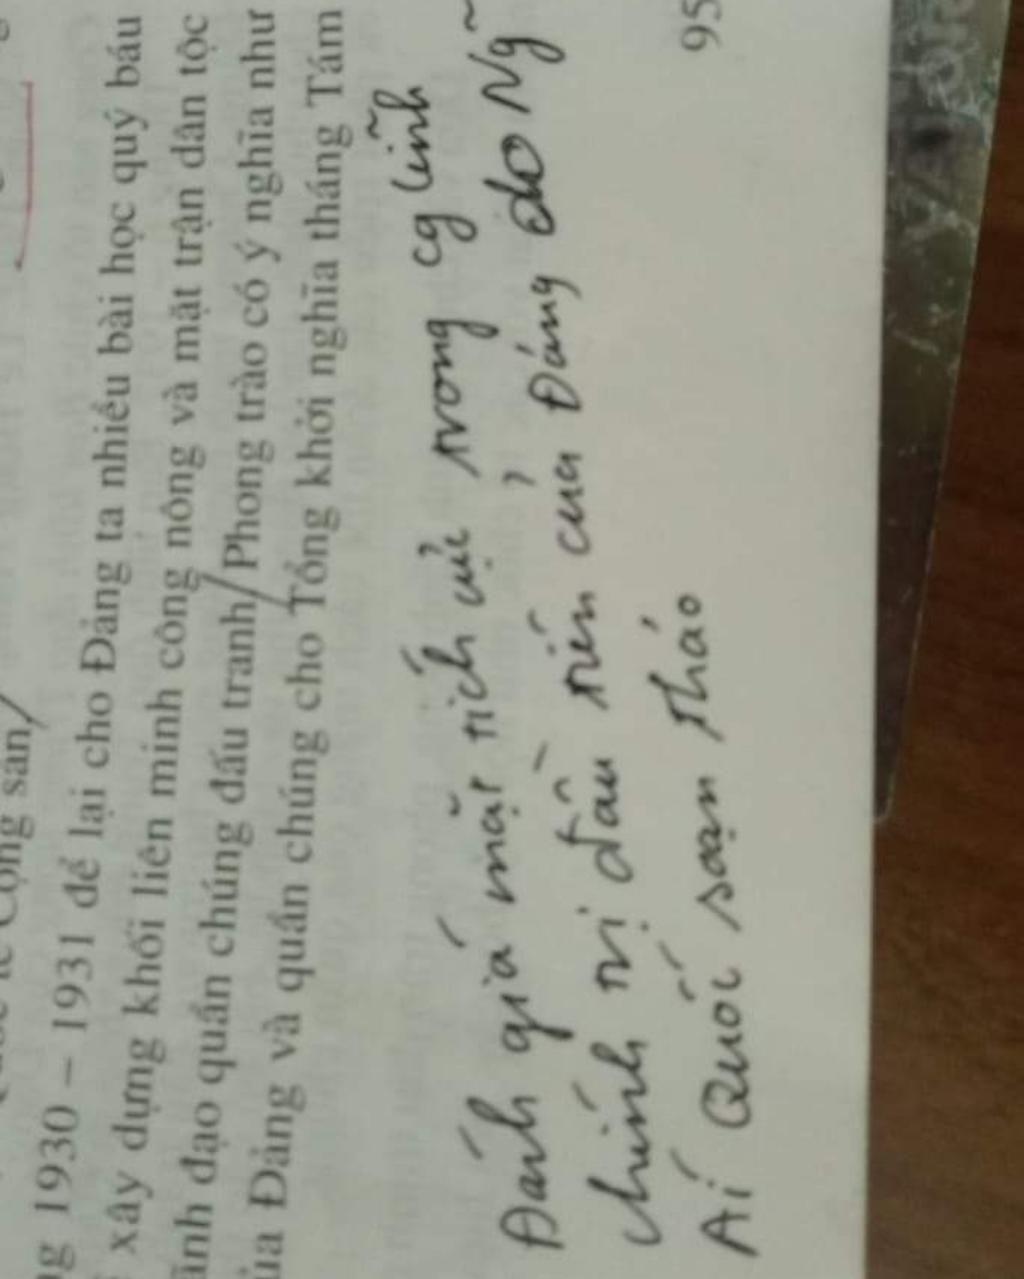 Cộng sản/
1930 – 1931 để lại cho Đảng ta nhiều bài học quý báu
xây dựng khối liên minh công nông và mặt trận dân tộc
ãnh đạo quần chúng đấu tranh/Phong trào có ý nghĩa như
ủa Đảng và quần chúng cho Tổng khởi nghĩa tháng Tám
Đánh giá mặt tích cực trong cg lĩnh
chính trị đầu tiên của Đảng do Ng~
Ái Quốc soạn thảo
95